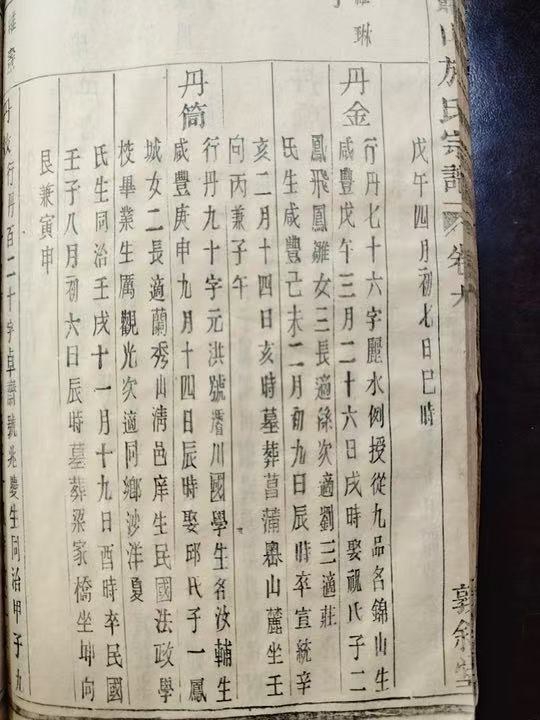 氏宗譜 卷九
戊午四月初七日巳時
丹金
行丹七十六字麗水例授從九品名錦山生
咸豐戊午三月二十六日戌時娶祝氏子二
鳳飛鳳雛女三長適徐次適劉三適莊
氏生咸豐己未二月初九日辰時卒宣統辛
亥二月十四日亥時墓葬菖蒲山麓坐壬
向丙兼子午
丹筒
行丹九十字元洪號潛川國學生名汝輔生
咸豐庚申九月十四日辰時娶邱氏子一鳳
城女二長適蘭秀山清邑庠生民國法政學
校畢業生厲觀光次適同鄉沙洋夏
氏生同治壬戌十一月十九日酉時卒民國
壬子八月初六日辰時墓葬梁家橋坐坤向
艮兼寅申
行丹百二十字卓號兆慶生同治甲子九